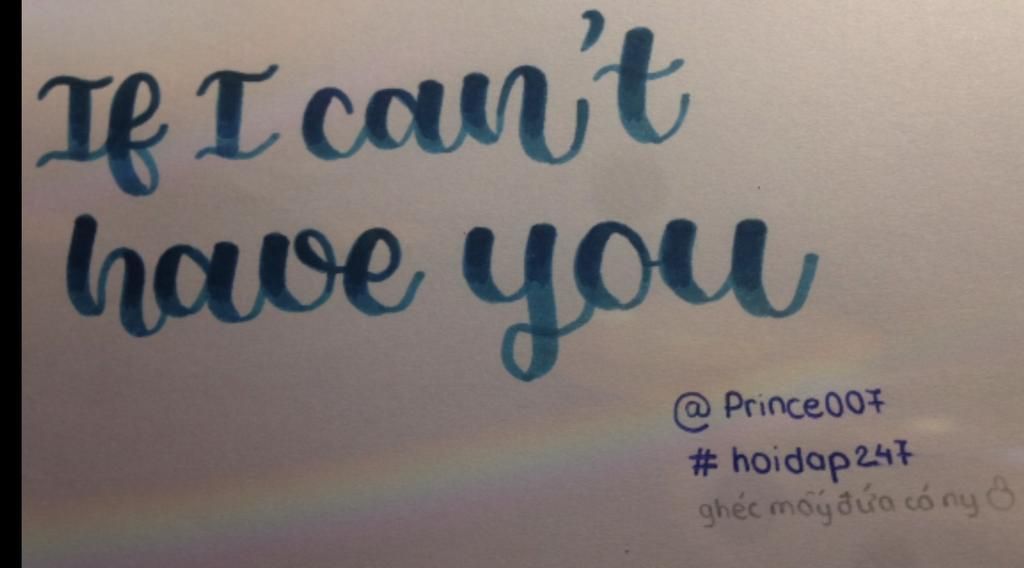 If I can't
have you
@ Prince007
# hoidap247
ghéc mấy đứa có ny